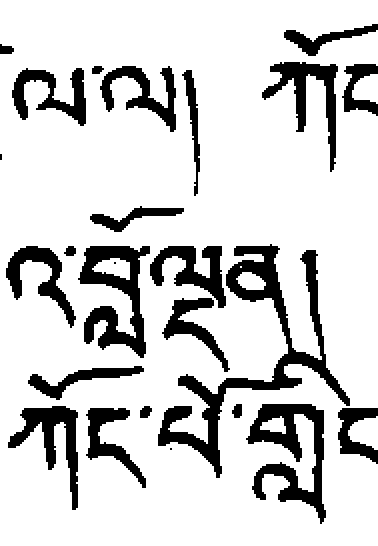 ལ་ལ། ཀོང
འ་བློ་ལྡན།
ཀོང་པོ་གླང